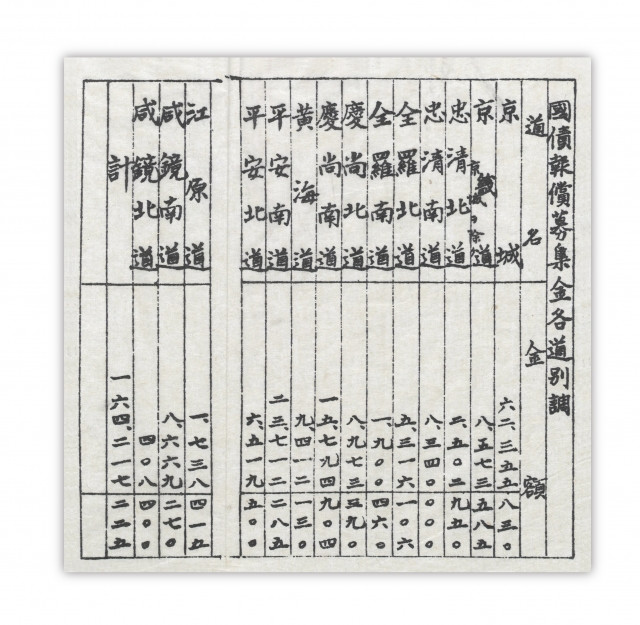 國債報償募集金各道別調
道名 金額
京城 六二、三五五 八三〇
京畿道 京城ヲ除ク 八、五七三 五八五
忠清北道 二、五〇二 九五〇
忠清南道 八、三四〇 〇〇〇
全羅北道 五、三一六 一〇六
全羅南道 一、九〇〇 四六〇
慶尚北道 八、九七三 五九〇
慶尚南道 一五、七九四 九〇四
黃海道 九、四一二 一三〇
平安南道 二三、七一二 二八五
平安北道 六、五一九 五〇〇
江原道 一、七三八 四一五
咸鏡南道 八、六六九 二七〇
咸鏡北道 四〇八 四〇〇
計 一六四、二一七 二二五